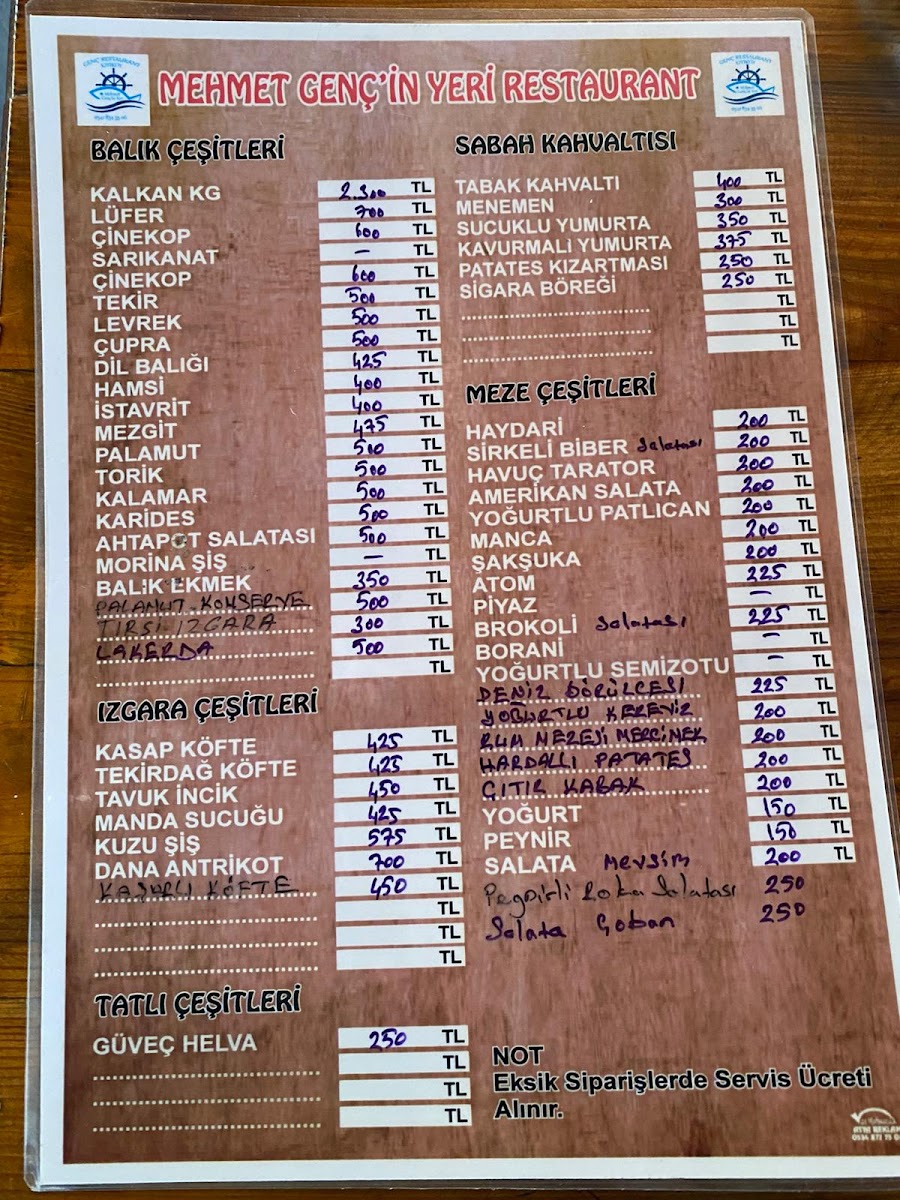 MEHMET GENÇ'İN YERİ RESTAURANT
BALIK ÇEŞİTLERİ
KALKAN KG 2.300 TL
LÜFER 700 TL
ÇİNEKOP 600 TL
SARIKANAT — TL
ÇİNEKOP 600 TL
TEKİR 500 TL
LEVREK 500 TL
ÇUPRA 500 TL
DİL BALIĞI 425 TL
HAMSİ 400 TL
İSTAVRİT 400 TL
MEZGİT 475 TL
PALAMUT 500 TL
TORİK 500 TL
KALAMAR 500 TL
KARİDES 500 TL
AHTAPOT SALATASI 500 TL
MORİNA ŞİŞ — TL
BALIK EKMEK 350 TL
PALAMUT KONSERVE 500 TL
TİRSİ IZGARA 300 TL
LAKERDA 500 TL
TL
IZGARA ÇEŞİTLERİ
KASAP KÖFTE 425 TL
TEKİRDAĞ KÖFTE 425 TL
TAVUK İNCİK 450 TL
MANDA SUCUĞU 425 TL
KUZU ŞİŞ 575 TL
DANA ANTRİKOT 700 TL
KAŞARLI KÖFTE 450 TL
TL
TL
TL
TATLI ÇEŞİTLERİ
GÜVEÇ HELVA 250 TL
TL
TL
TL
SABAH KAHVALTISI
TABAK KAHVALTI 400 TL
MENEMEN 300 TL
SUCUKLU YUMURTA 350 TL
KAVURMALİ YUMURTA 375 TL
PATATES KIZARTMASI 250 TL
SİGARA BÖREĞİ 250 TL
TL
TL
TL
MEZE ÇEŞİTLERİ
HAYDARİ 200 TL
SİRKELİ BİBER Salatası 200 TL
HAVUÇ TARATOR 200 TL
AMERİKAN SALATA 200 TL
YOĞURTLU PATLICAN 200 TL
MANCA 200 TL
ŞAKŞUKA 200 TL
ATOM 225 TL
PİYAZ — TL
BROKOLİ Salatası 225 TL
BORANİ — TL
YOĞURTLU SEMİZOTU — TL
DENİZ BÖRÜLCESİ 225 TL
YOĞURTLU KEREVİZ 200 TL
RUM MEZESİ MERCİMEK 200 TL
HARDALLI PATATES 200 TL
ÇITIR KABAK 200 TL
YOĞURT 150 TL
PEYNİR 150 TL
SALATA Mevsim 200 TL
Peynirli Roka Salatası 250
Salata Çoban 250
NOT
Eksik Siparişlerde Servis Ücreti
Alınır.